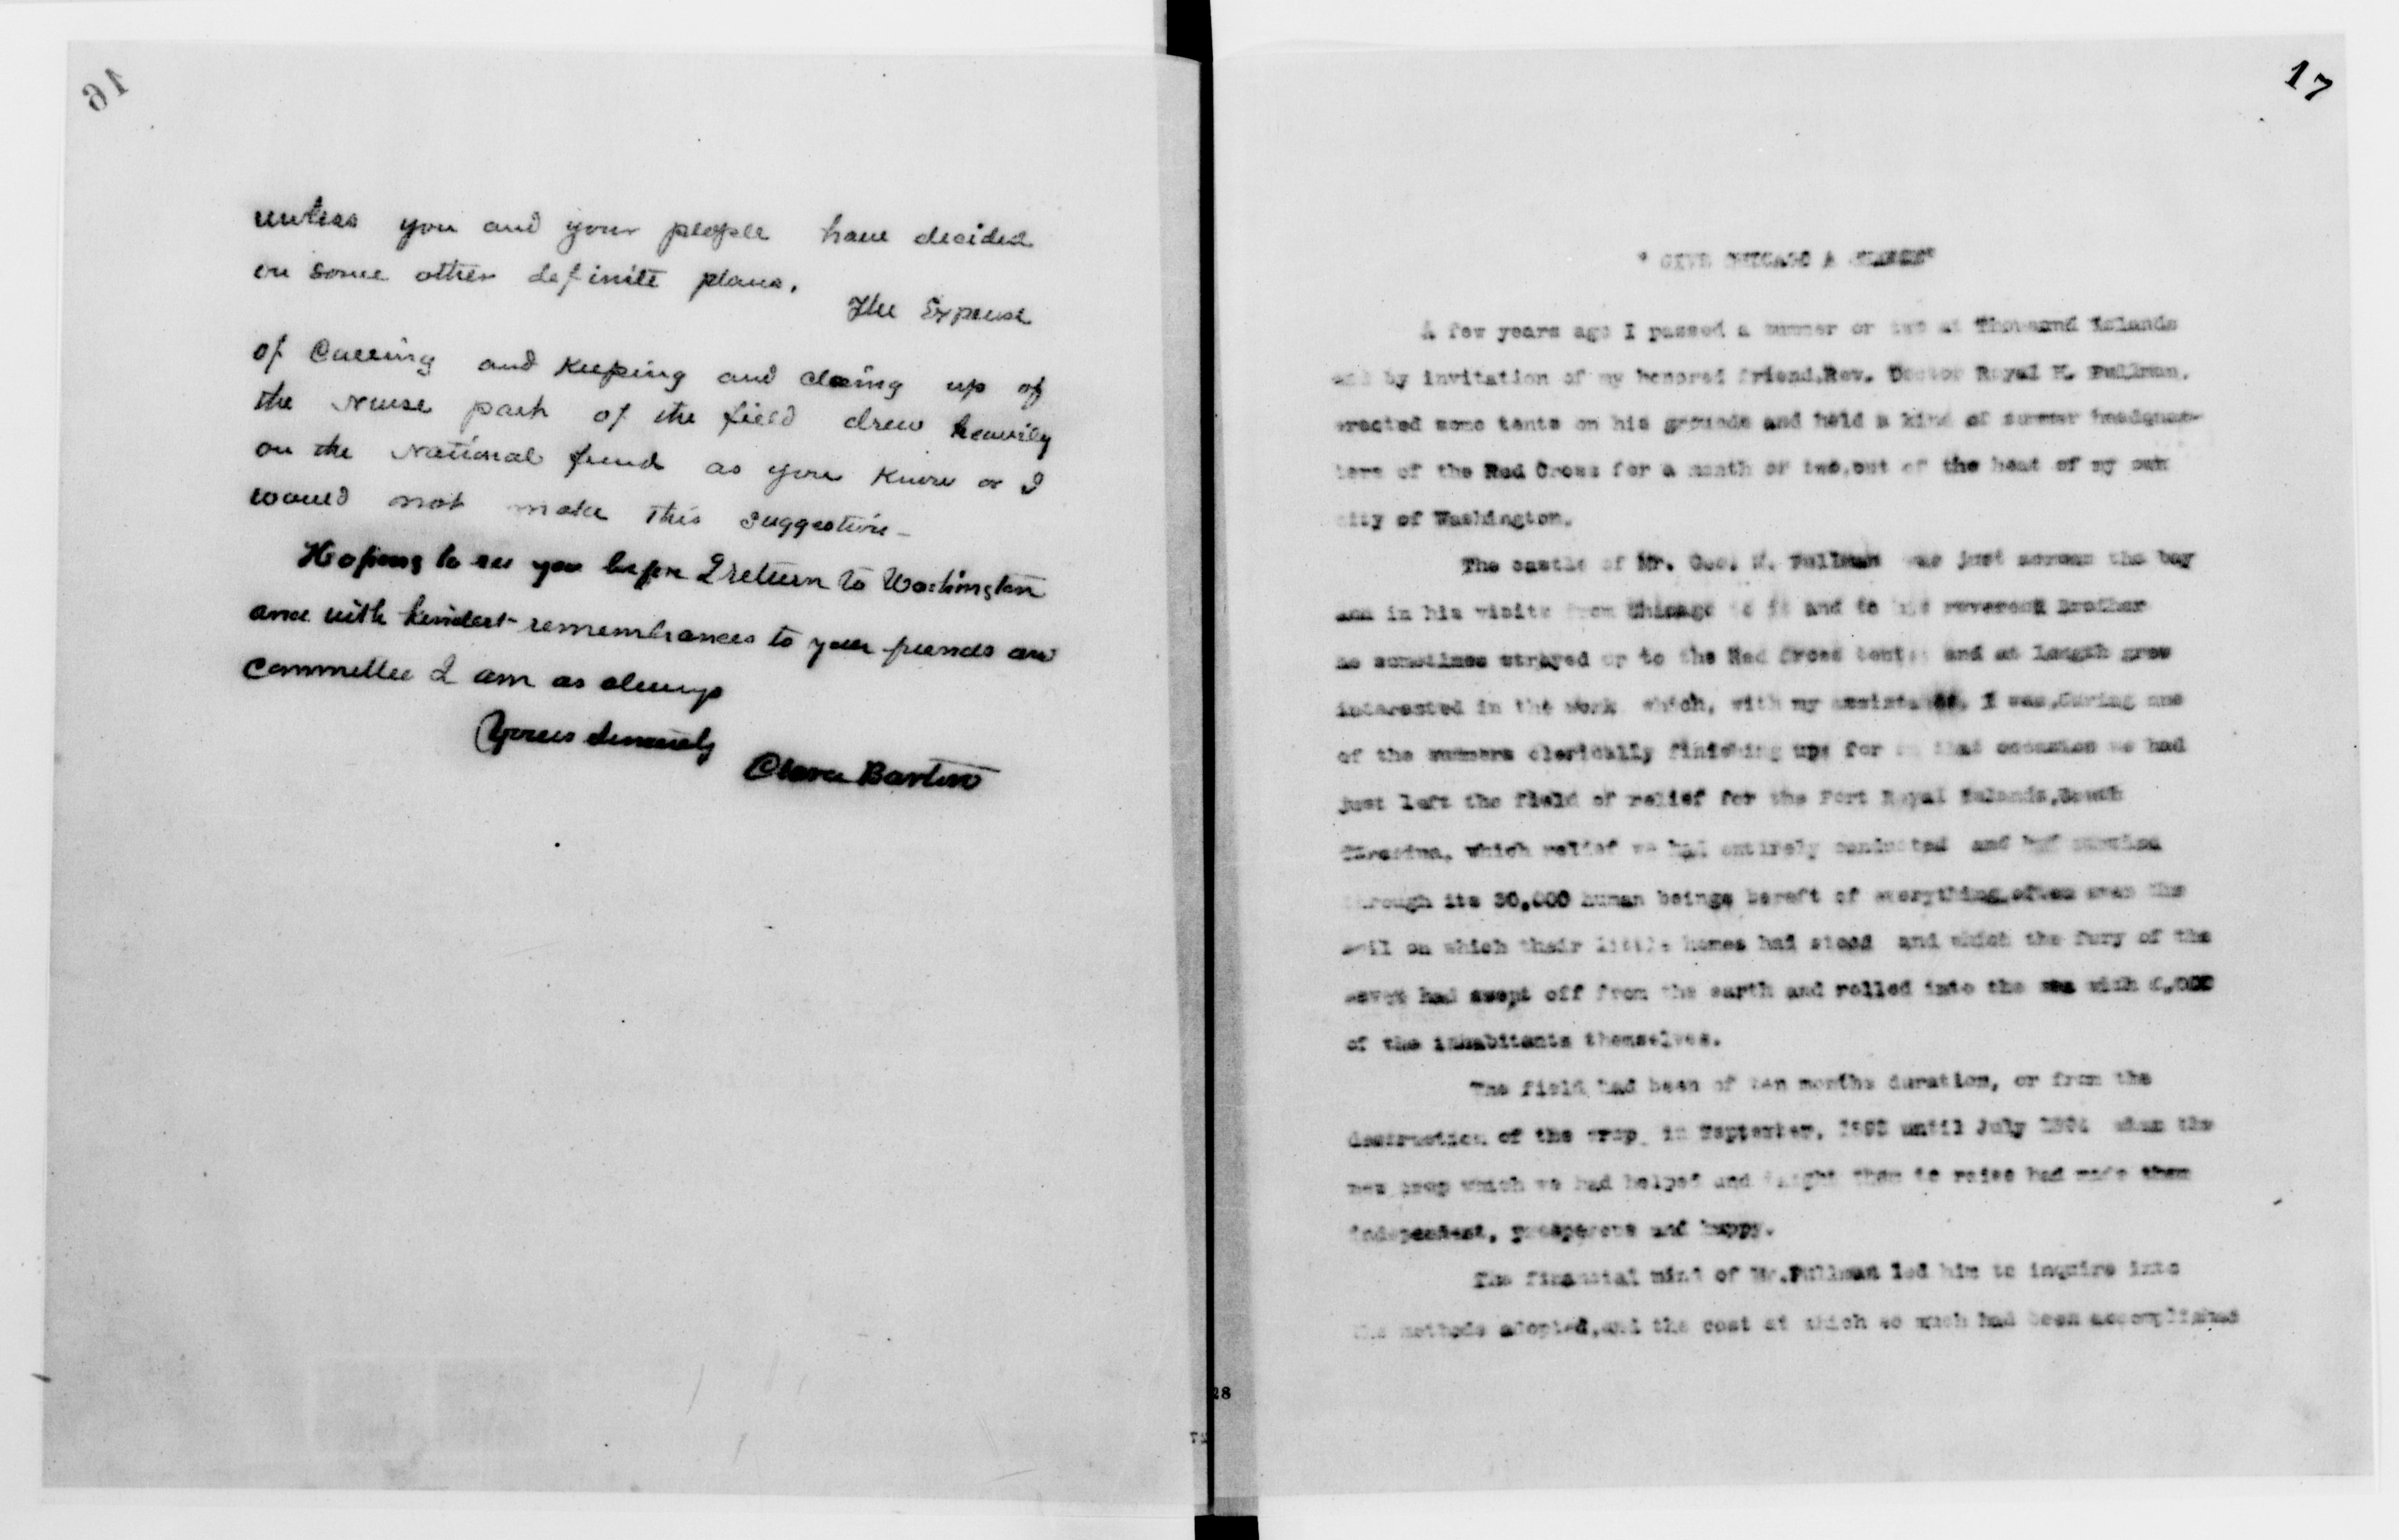 16
unless you and your people have decided
on some other definite plans.
The Expense
of Calling and Keeping and closing up of
the Nurse part of the field drew heavily
on the National fund as you Know or I
would not make this suggestion -
Hoping to see you before I return to Washington
and with kindest remembrances to your friends and
Committee I am as always
Yours sincerely
Clara Barton
17
" GIVE CHICAGO A CHANCE"
A few years ago I passed a summer or two at Thousand Islands
and by invitation of my honored friend,Rev. Doctor Royal H. Pullman,
erected some tents on his grounds and held a kind of summer headquar-
ters of the Red Cross for a month or two,out of the heat of my own
city of Washington.
The castle of Mr. Geo. M. Pullman was just across the bay
and in his visits from Chicago to it and to his reverend brother
he sometimes strayed or to the Red Cross tents and at length grew
interested in the work which, with my I was,during one
of the summers clerically finishing up; for on that occasion we had
just left the field of relief for the Port Royal Islands,South
Carolina, which relief we had entirely conducted and
through its 30,000 human beings bereft of everything,often even the
soil on which their little homes had stood and which the fury of the
waves had swept off from the earth and rolled into the sea with
of the inhabitants themselves.
The field had been of ten months duration, or from the
destruction of the crop in September, 1893 until July 1894 when the
new crop which we had helped and taught them to raise had made them
independent, prosperous and happy.
The financial mind of Mr.Pullman led him to inquire into
the methods adopted,and the cost at which so much had been accomplished
28
27